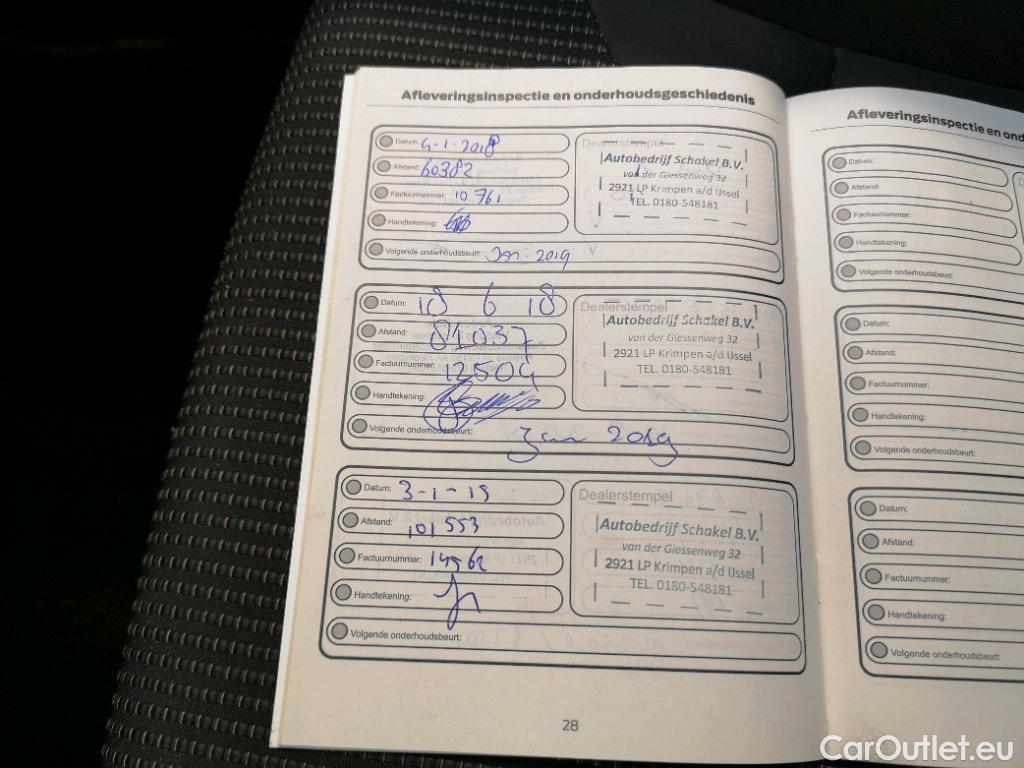 Afleveringsinspectie en onderhoudsgeschiedenis
Datum: 4-1-2018
Afstand: 60382
Factuurnummer: 10761
Handtekening:
Volgende onderhoudsbeurt: Jan-2019
Dealerstempel
Autobedrijf Schakel B.V.
van der Giessenweg 32
2921 LP Krimpen a/d IJssel
TEL. 0180-548181
Datum: 18 6 18
Afstand: 81037
Factuurnummer: 12504
Handtekening:
Volgende onderhoudsbeurt: Jan 2019
Dealerstempel
Autobedrijf Schakel B.V.
van der Giessenweg 32
2921 LP Krimpen a/d IJssel
TEL. 0180-548181
Datum: 3-1-19
Afstand: 101553
Factuurnummer: 14562
Handtekening:
Volgende onderhoudsbeurt:
Dealerstempel
Autobedrijf Schakel B.V.
van der Giessenweg 32
2921 LP Krimpen a/d IJssel
TEL. 0180-548181
28
Afleveringsinspectie en ond
Datum:
Afstand:
Factuurnummer:
Handtekening:
Volgende onderhoudsbeurt:
Datum:
Afstand:
Factuurnummer:
Handtekening:
Volgende onderhoudsbeurt:
Datum:
Afstand:
Factuurnummer:
Handtekening:
Volgende onderhoudsbeurt:
CarOutlet.eu